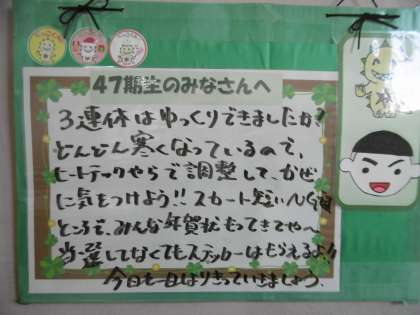 47期生のみなさんへ
3連休はゆっくりできましたか?
どんどん寒くなっているので、
ヒートテックやらで調整して、かぜ
に気をつけよう!! スカート短いNG
ところで、みんな年賀状もってきてや〜
当選してなくてもステッカーはもらえるよ!!
今日も一日はりきっていきましょう。